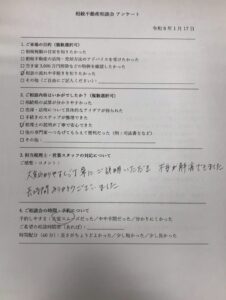 相続不動産相談会 アンケート
令和8年1月17日
1. ご来場の目的（複数選択可）
□ 相続税額の目安を知りたかった
□ 相続不動産の活用・売却方法のアドバイスを受けたかった
□ 空き家3,000万円控除などの特例を確認したかった
相談の流れや手続きを知りたかった
□ その他（ご自由にご記入ください）
2. ご相談内容はいかがでしたか？（複数選択可）
□ 相続税の試算が分かりやすかった
□ 売却・活用について具体的なアイデアが得られた
□ 手続きのステップが整理できた
税理士の説明が丁寧で安心できた
□ 他の専門家へつなげてもらえて便利だった（例：司法書士など）
□ その他：
3. 担当税理士・営業スタッフの対応について
ご感想・コメント：
大変わかりやすく丁寧にご説明いただき 不安が解消できました
長時間ありがとうございました
4. ご相談会の時間・予約について
予約しやすさ：
スムーズだった／やや不便だった／分かりにくかった
ご希望の相談時間帯（あれば）：
時間配分（60分）：長さがちょうどよかった／少し短かった／少し長かった